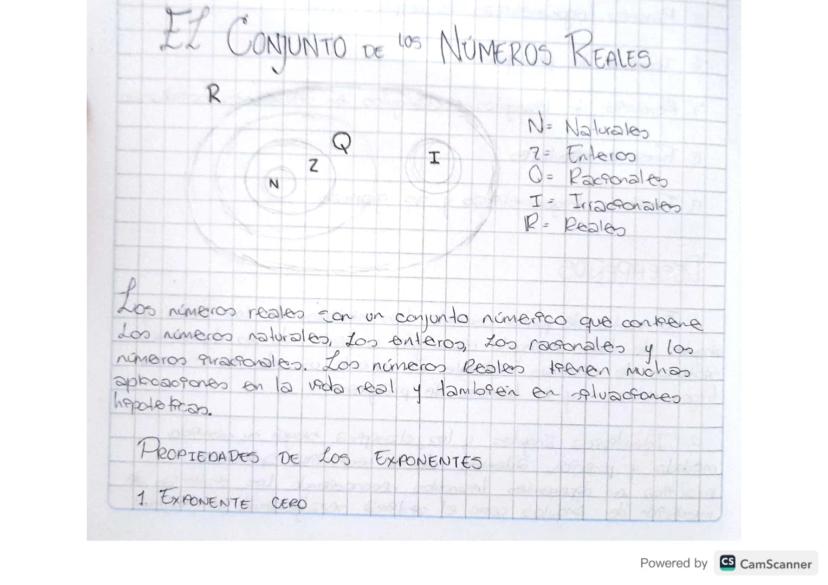 El Conjunto de los Números Reales
R
Q
Z
I
N
N= Naturales
Z= Enteros
Q= Racionales
I= Irracionales
R= Reales
Los números reales son un conjunto númerico que contiene
Los números naturales, Los enteros, Los racionales y los
números irracionales. Los números Reales tienen muchas
aplicaciones en la vida real y también en situaciones
hipoteticas.
PROPIEDADES DE LOS EXPONENTES
1. EXPONENTE CERO
Powered by CS CamScanner